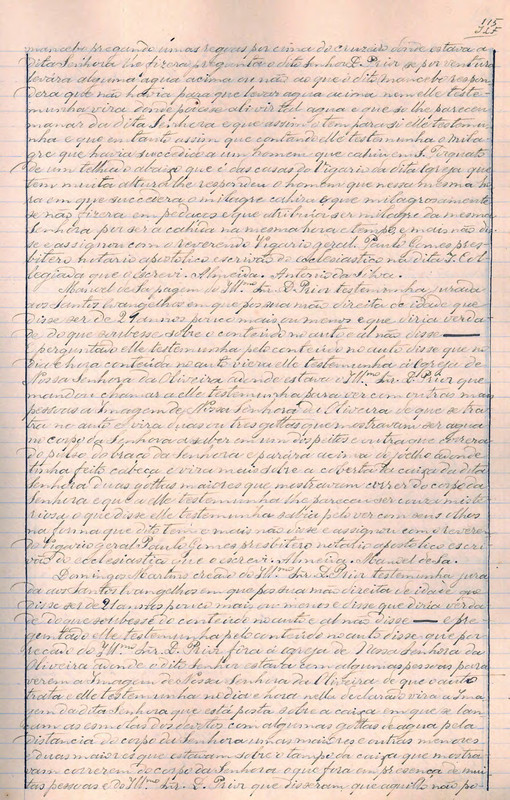 115
mancebo pregando umas regoas por cima do cruzeiro donde estava a
dita Senhora lhe fizera pregunta o dito Senhor D. Prior se por ventura
levára alguma agua acima ou não ao que o dito mancebo respon
dera que não havia para que levar agua acima nem elle teste-
munha vira donde podesse alli vir tal agua e que se lhe pareceu
manar da dita Senhora e que assim o tem para si elle testemu
nha e que em tanto assim que contando elle testemunha o mila-
gre que havia succedido a um homem que cahiu em S. Torquato
de um telhado abaixo que é das casas do Vigario da dita Igreja que
tem muita altura lhe respondeu o homem que nessa mesma ho
ra em que succedera o milagre cahira e que milagrosamente
se não fizera em pedaços e que atribuia ser milagre da mesma
Senhora por ser a cahida na mesma hora e tempo e mais não dis
se e assignou com o reverendo Vigario geral. Paulo Gomes pres
bitero notario apostolico escrivão do ecclesiastico na dita I. Col
legiada que o escrevi. Almeida. Antonio da Silva.
Manuel de Sá pagem do Ill.mo Snr. D. Prior testemunha jurada
aos Santos Evangelhos em que poz sua mão direita de idade que
disse ser de 21 annos pouco mais ou menos e que diria verda-
de do que soubesse sobre o conteudo no auto e al não disse —
E perguntado elle testemunha pelo conteudo no auto disse que no
dia e hora conteuda no auto viera elle testemunha á Igreja de
Nossa Senhora da Oliveira aonde estava o Ill.mo Snr. D. Prior que
mandou chamar a elle testemunha para ver com outras mais
pessoas a Imagem de Nossa Senhora da Oliveira de que se tra-
tra no auto e vira duas ou tres gottas que mostravam ser agua
no corpo da Senhora a saber em um dos peitos e outra que correra
do pulso do braço da Senhora e parára acima do joelho aonde
tinha feito cabeça e vira mais sobre a coberta da caixa da dita
Senhora duas gottas maiores que mostravam correr do corpo da
Senhora e que a elle testemunha lhe pareceu ser couza miste
riosa o que disse elle testemunha sabia pelo ver com seus olhos
na forma que dito tem e mais não disse e assignou com o reveren
do Vigario geral. Paulo Gomes presbitero notario apostolico escri
vão do ecclesiastico que o escrevi. Almeida. Manuel de Sá.
Domingos Martins creado do Ill.mo Snr. D. Prior testemunha jura
da aos Santos Evangelhos em que poz sua mão direita de idade que
disse ser de 21 annos pouco mais ou menos e disse que diria verda
de do que soubesse do conteudo no auto e al não disse — e pre
guntado elle testemunha pelo conteudo no auto disse que por
recado do Ill.mo Snr. D. Prior fôra á Igreja de Nossa Senhora da
Oliveira aonde o dito Senhor estava com algumas pessoas para
verem a Imagem de Nossa Senhora da Oliveira de que o auto
trata e elle testemunha no dia e hora nelle declarado vira a Ima
gem da dita Senhora que está posta sobre a caixa em que se lan
çam as esmolas dos devotos com algumas gottas de agua pela
distancia do corpo da Senhora umas maiores e outras menores
e duas maiores que estavam sobre o tampo da caixa que mostra
vam correrem do corpo da Senhora o que fôra em presença de mui
tas pessoas e do Ill.mo Snr. D. Prior que disseram que aquillo não po-